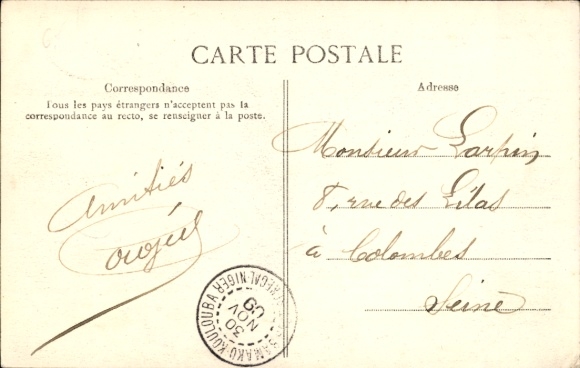 CARTE POSTALE
Correspondance
Tous les pays étrangers n'acceptent pas la
correspondance au recto, se renseigner à la poste.
Adresse
Amitiés
Monsieur Larpin
8, rue des Lilas
à Colombes
Seine
BAMAKO-KOULOUBA
SÉNÉGAL-NIGER
30
NOV
09